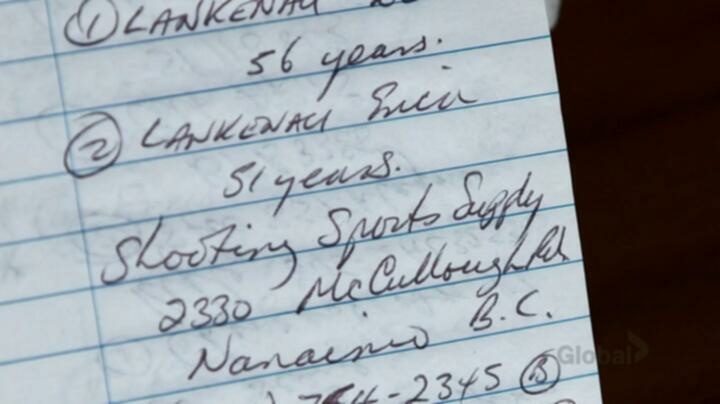 ① LANKENAU
56 years.
② LANKENAU Erica
51 years.
Shooting Sports Supply
2330 McCullough Rd
Nanaimo B.C.
754-2345 Ⓑ
Global